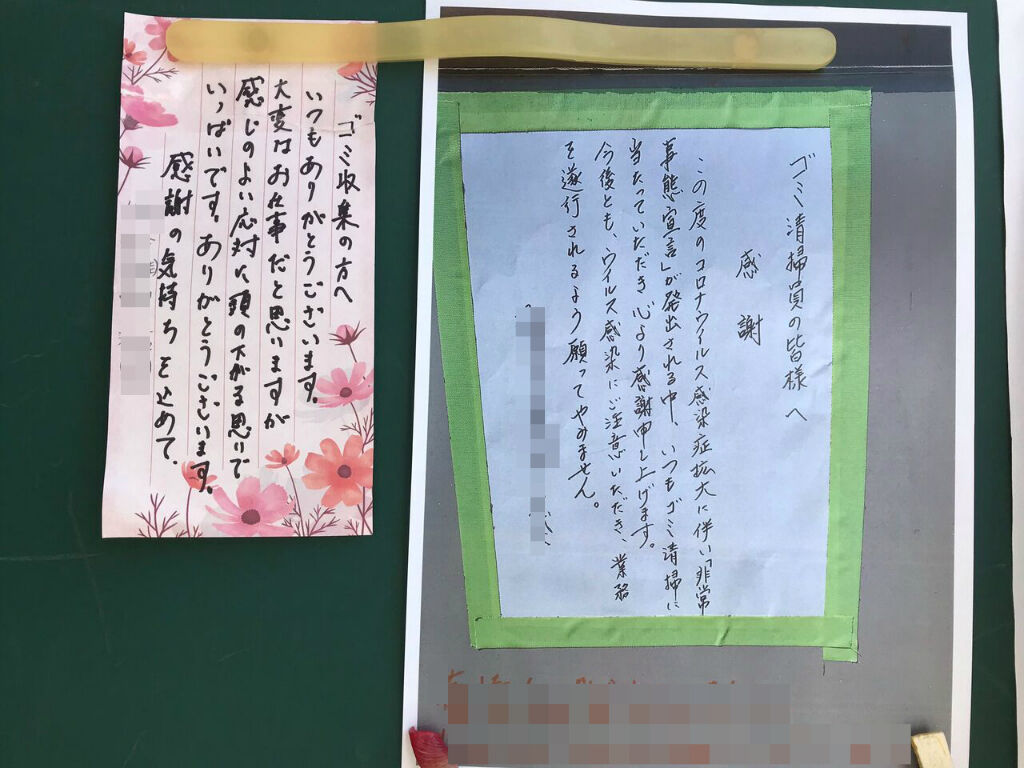 ゴミ収集の方へ
いつもありがとうございます。
大変はお仕事だと思いますが
感じのよい応対に頭の下がる思いで
いっぱいです。ありがとうございます。
感謝の気持ちを込めて、
ゴミ清掃員の皆様へ
感謝
この度のコロナウイルス感染症拡大に伴い「非常
事態宣言」が発出される中、いつもゴミ清掃に
当たっていただき心より感謝申し上げます。
今後とも、ウイルス感染にご注意いただき、業務
を遂行されるよう願ってやみません。